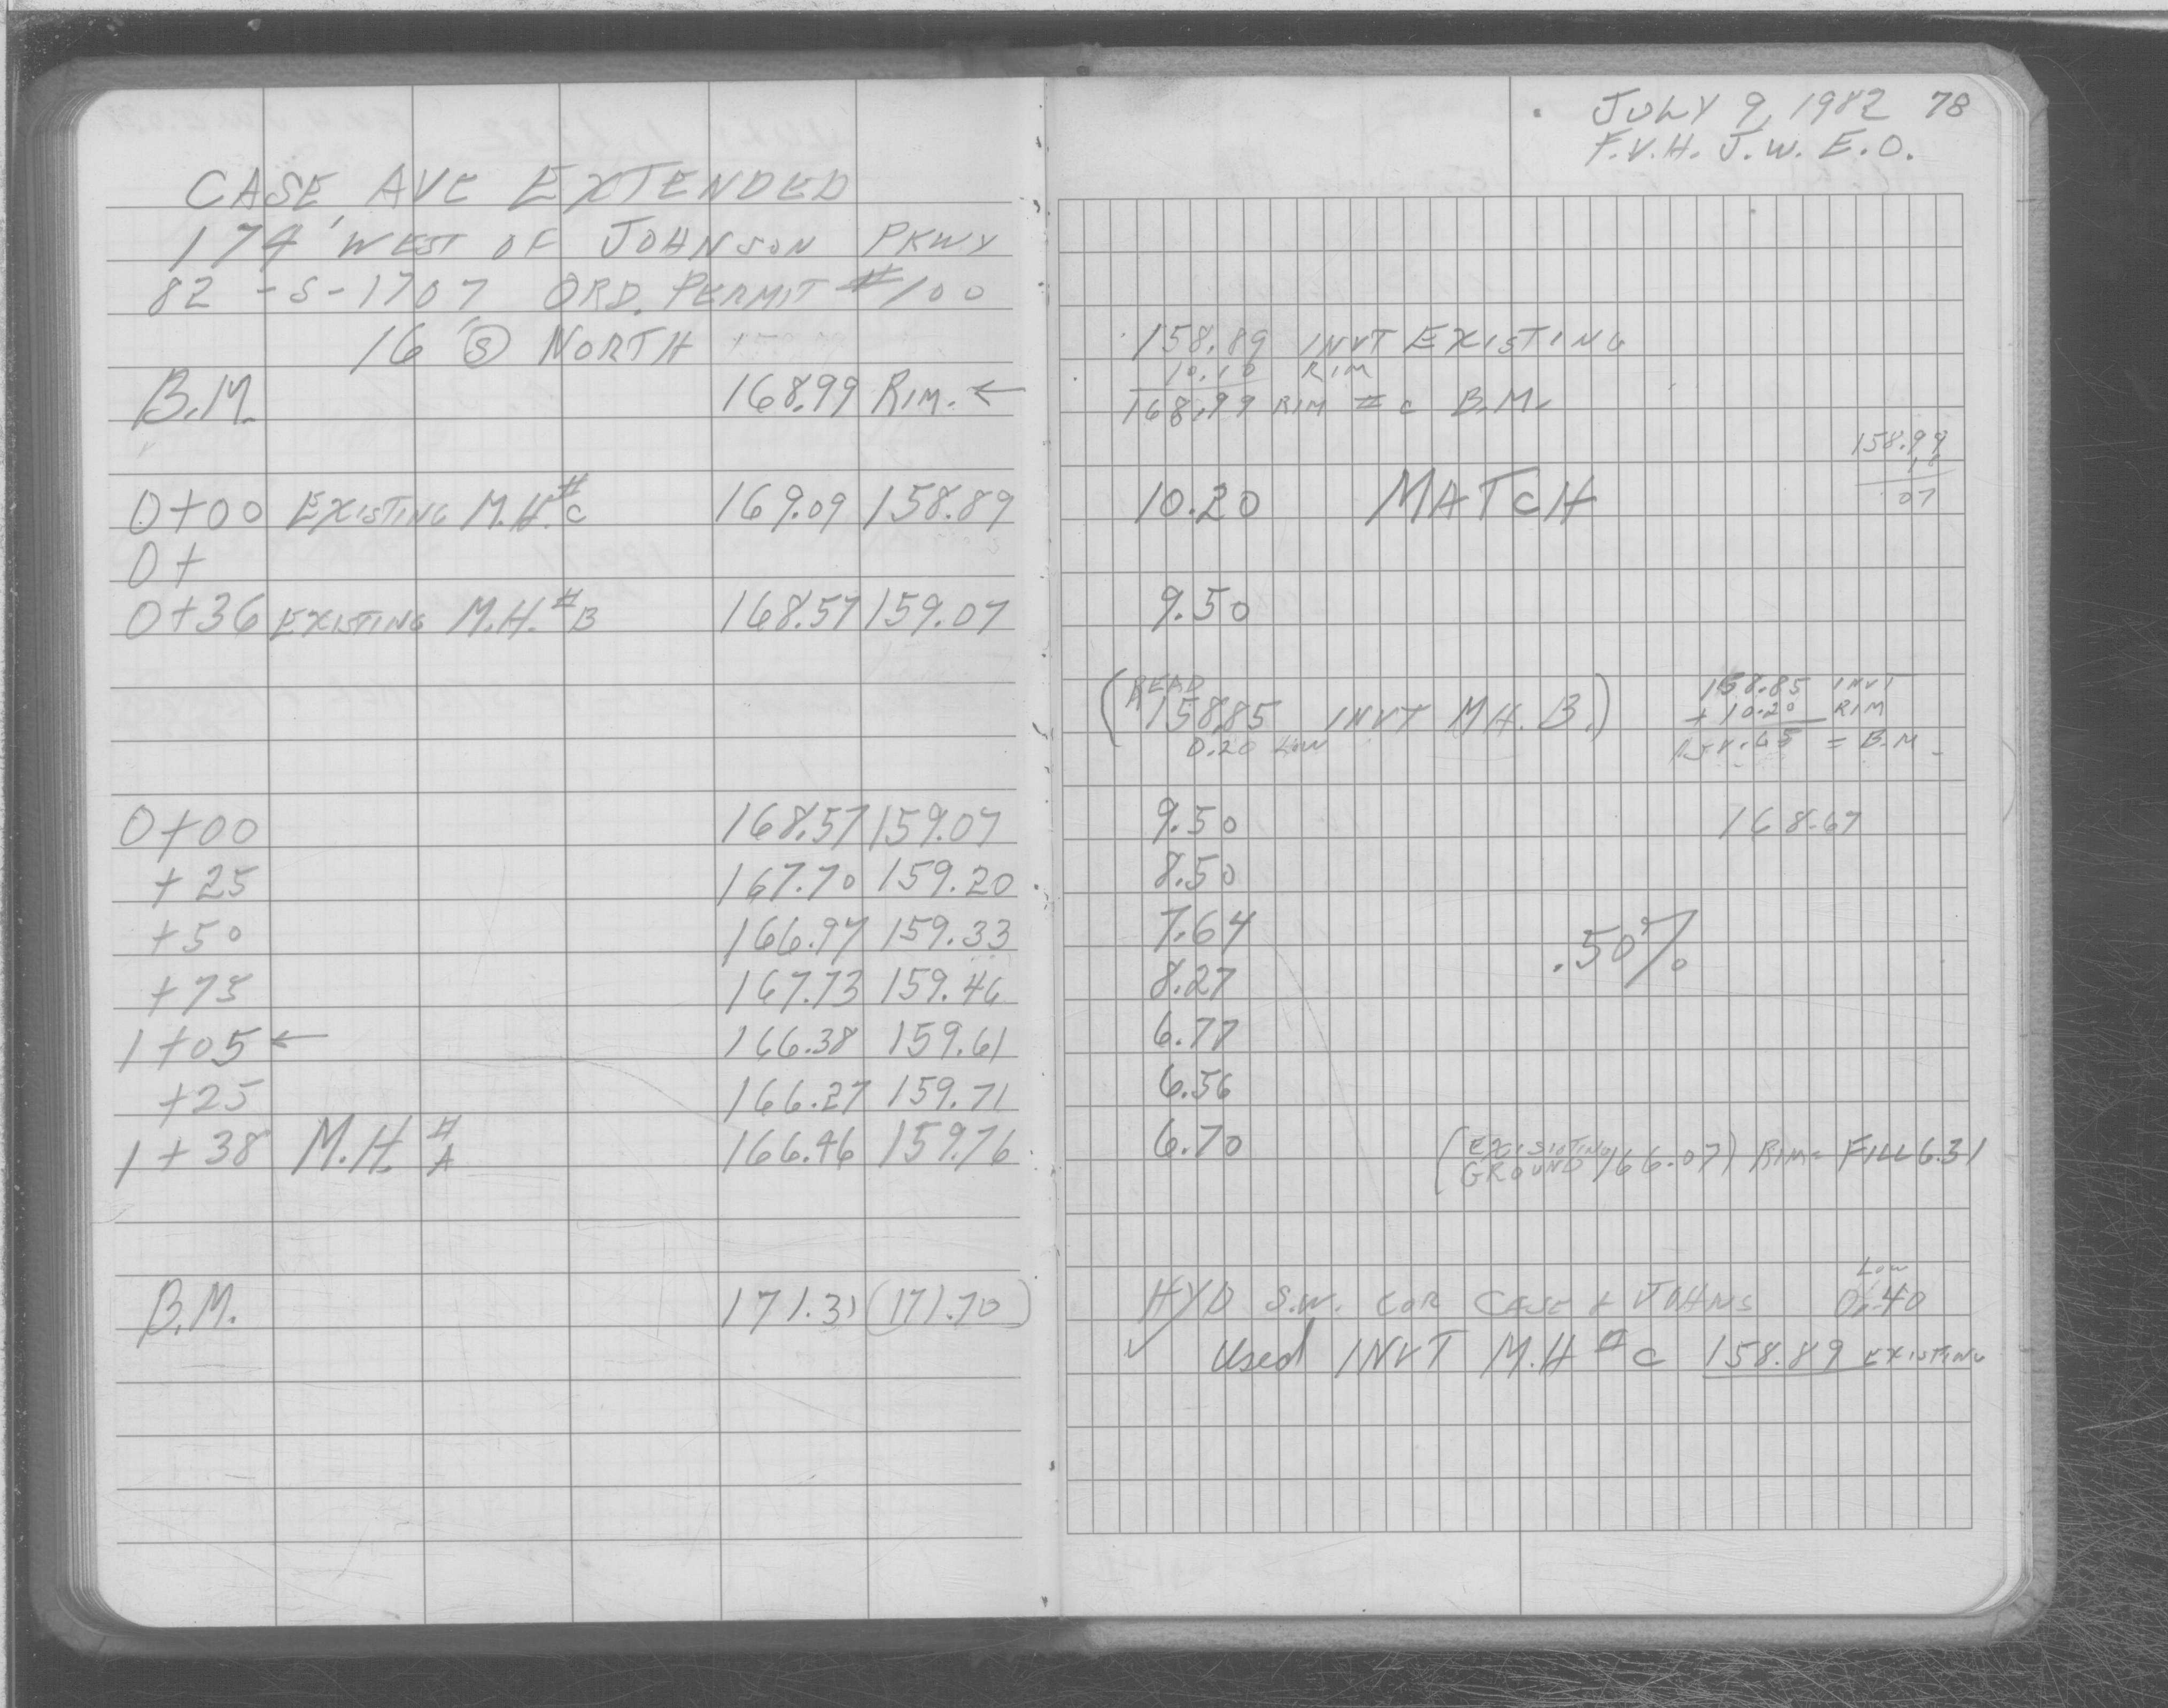 CASE AVE EXTENDED
174' WEST OF JOHNSON PKWY
82-S-1707 ORD. PERMIT #100
16' Ⓢ NORTH
B.M. 168.99 RIM. ←
0+00 EXISTING M.H. #C 169.09 158.89
0+
0+36 EXISTING M.H. #B 168.57 159.07
0+00 168.57 159.07
+25 167.70 159.20
+50 166.97 159.33
+75 167.73 159.46
1+05 ← 166.38 159.61
+25 166.27 159.71
1+38 M.H. #A 166.46 159.76
B.M. 171.31 (171.70)
JULY 9, 1982 78
F.V.H. J.W. E.O.
158.89 INVT EXISTING
10.10 RIM
168.99 RIM # C B.M.
158.99
07
10.20 MATCH
9.50
(READ
158.85 INVT M.H. B.)
0.20 LOW
158.85 INVT
+10.20 RIM
= B.M.
9.50 168.67
8.50
7.64 .50%
8.27
6.77
6.56
6.70 (EXISTING
GROUND 166.07) RIM = FILL 6.31
HYD S.W. COR CASE & JOHNS LOW 0.40
✓ Used INVT M.H #C 158.89 EXISTING